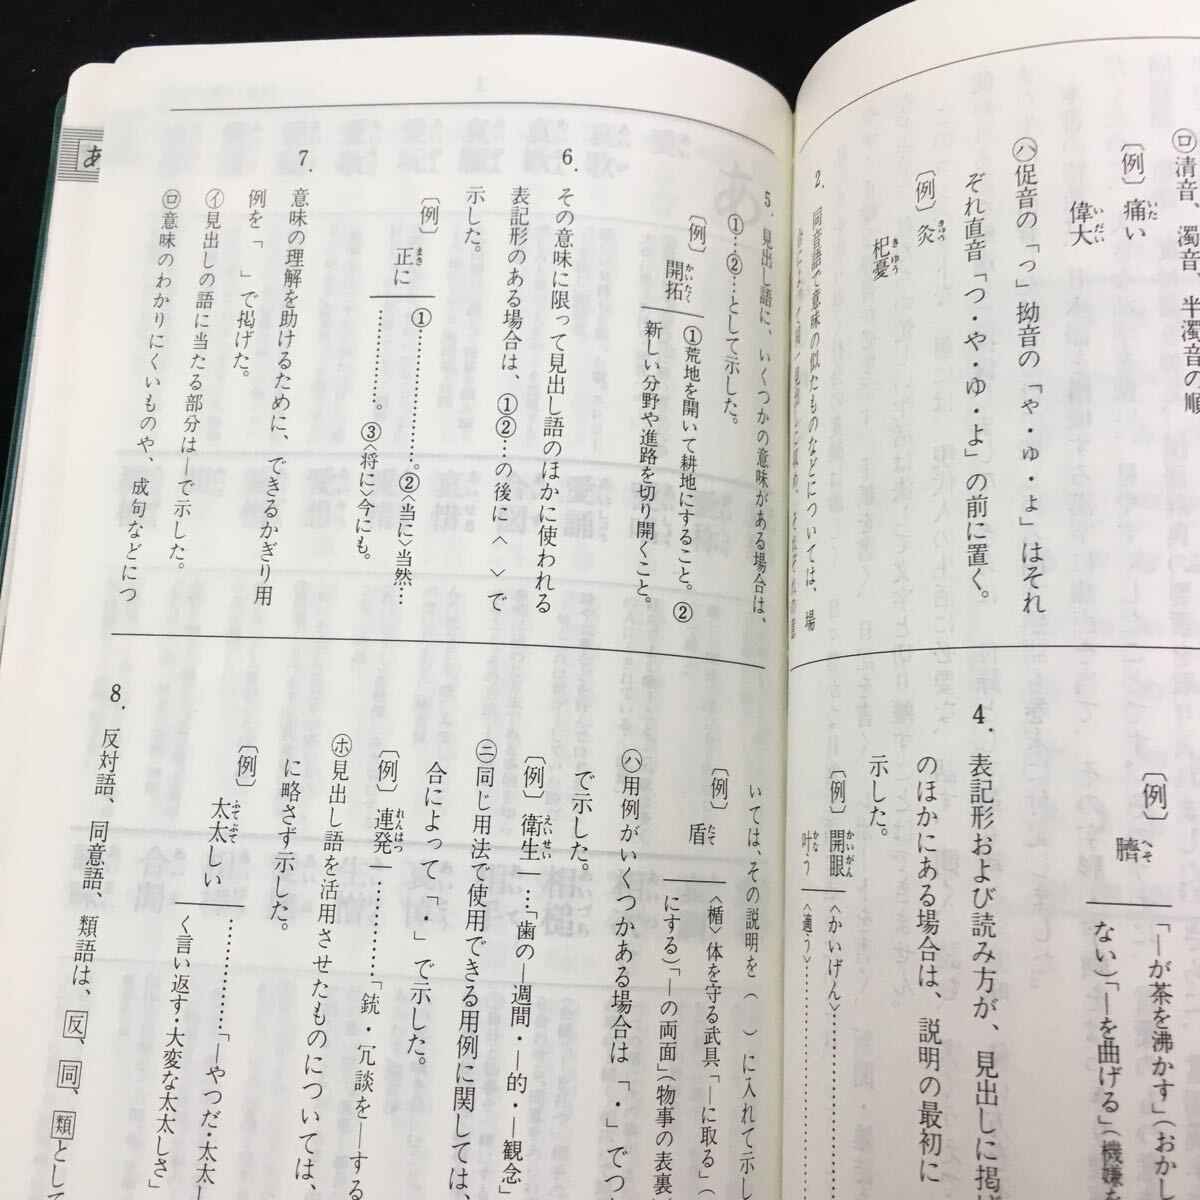 ロ清音、濁音、半濁音の順
〔例〕痛い
偉大
ハ促音の「っ」拗音の「ゃ・ゅ・ょ」はそれ
ぞれ直音「つ・や・ゆ・よ」の前に置く。
〔例〕灸
杞憂
2. 同音語で意味の似たものなどについては、場
〔例〕臍
「―が茶を沸かす」(おかし
ない)「―を曲げる」(機嫌を
4. 表記形および読み方が、見出しに掲げ
のほかにある場合は、説明の最初に
示した。
〔例〕開眼 〈かいげん〉…………
叶う 〈適う〉…………
5. 見出し語に、いくつかの意味がある場合は、
①…②…として示した。
〔例〕開拓 ①荒地を開いて耕地にすること。②
新しい分野や進路を切り開くこと。
6. その意味に限って見出し語のほかに使われる
表記形のある場合は、①②…の後に〈 〉で
示した。
〔例〕正に ①……………。②〈当に〉当然…
…………。③〈将に〉今にも。
7. 意味の理解を助けるために、できるかぎり用
例を「 」で掲げた。
イ見出しの語に当たる部分は―で示した。
ロ意味のわかりにくいものや、成句などにつ
いては、その説明を( )に入れて示し
〔例〕盾 〈楯〉体を守る武具「―に取る」(
にする)「―の両面」(物事の表裏
ハ用例がいくつかある場合は「・」でつ
で示した。
〔例〕衛生 ―…「歯の―週間・―的・―観念」
ニ同じ用法で使用できる用例に関しては、
合によって「・」で示した。
〔例〕連発 ―…………「銃・冗談を―する
ホ見出し語を活用させたものについては、
に略さず示した。
〔例〕太太しい …………「―やつだ・太太し
く言い返す・大変な太太しさ」
8. 反対語、同意語、類語は、反、同、類として
あ